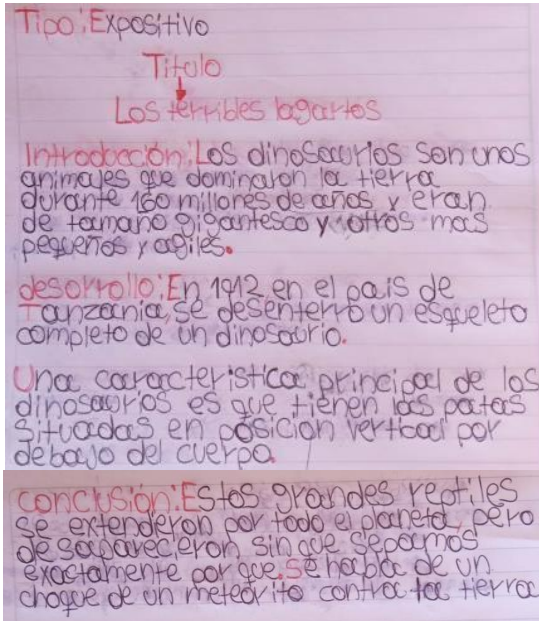 Tipo: Expositivo
Titulo
Los terribles lagartos
Introducción: Los dinosaurios son unos
animales que dominaron la tierra
durante 160 millones de años y eran
de tamaño gigantesco y otros mas
pequeños y agiles.
desorrollo: En 1912 en el pais de
Tanzania, se desenterro un esqueleto
completo de un dinosaurio.
Una caracteristica principal de los
dinosaurios es que tienen las patas
situadas en posicion vertical por
debajo del cuerpo.
conclusión: Estos grandes reptiles
se extenderon por todo el planeta, pero
desaparecieron sin que sepamos
exactamente por que. Se habla de un
choque de un meteorito contra la tierra